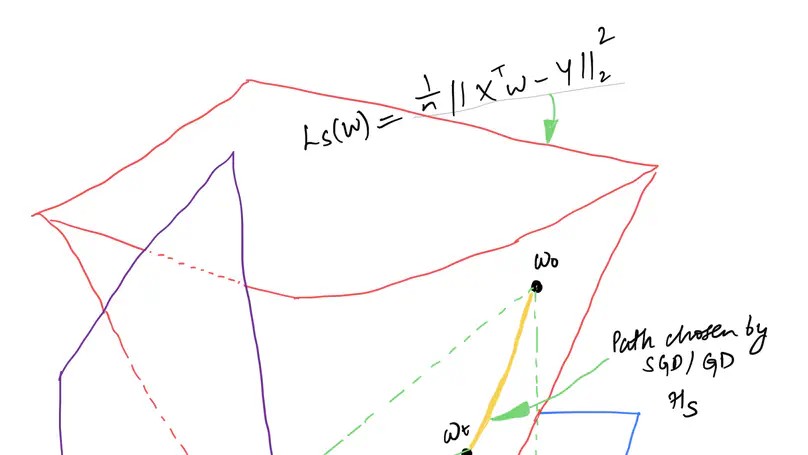 Ls(W) = 1/n ||X^T W - Y||_2^2
W0
Path chosen by
SGD/GD
Hs
Wt